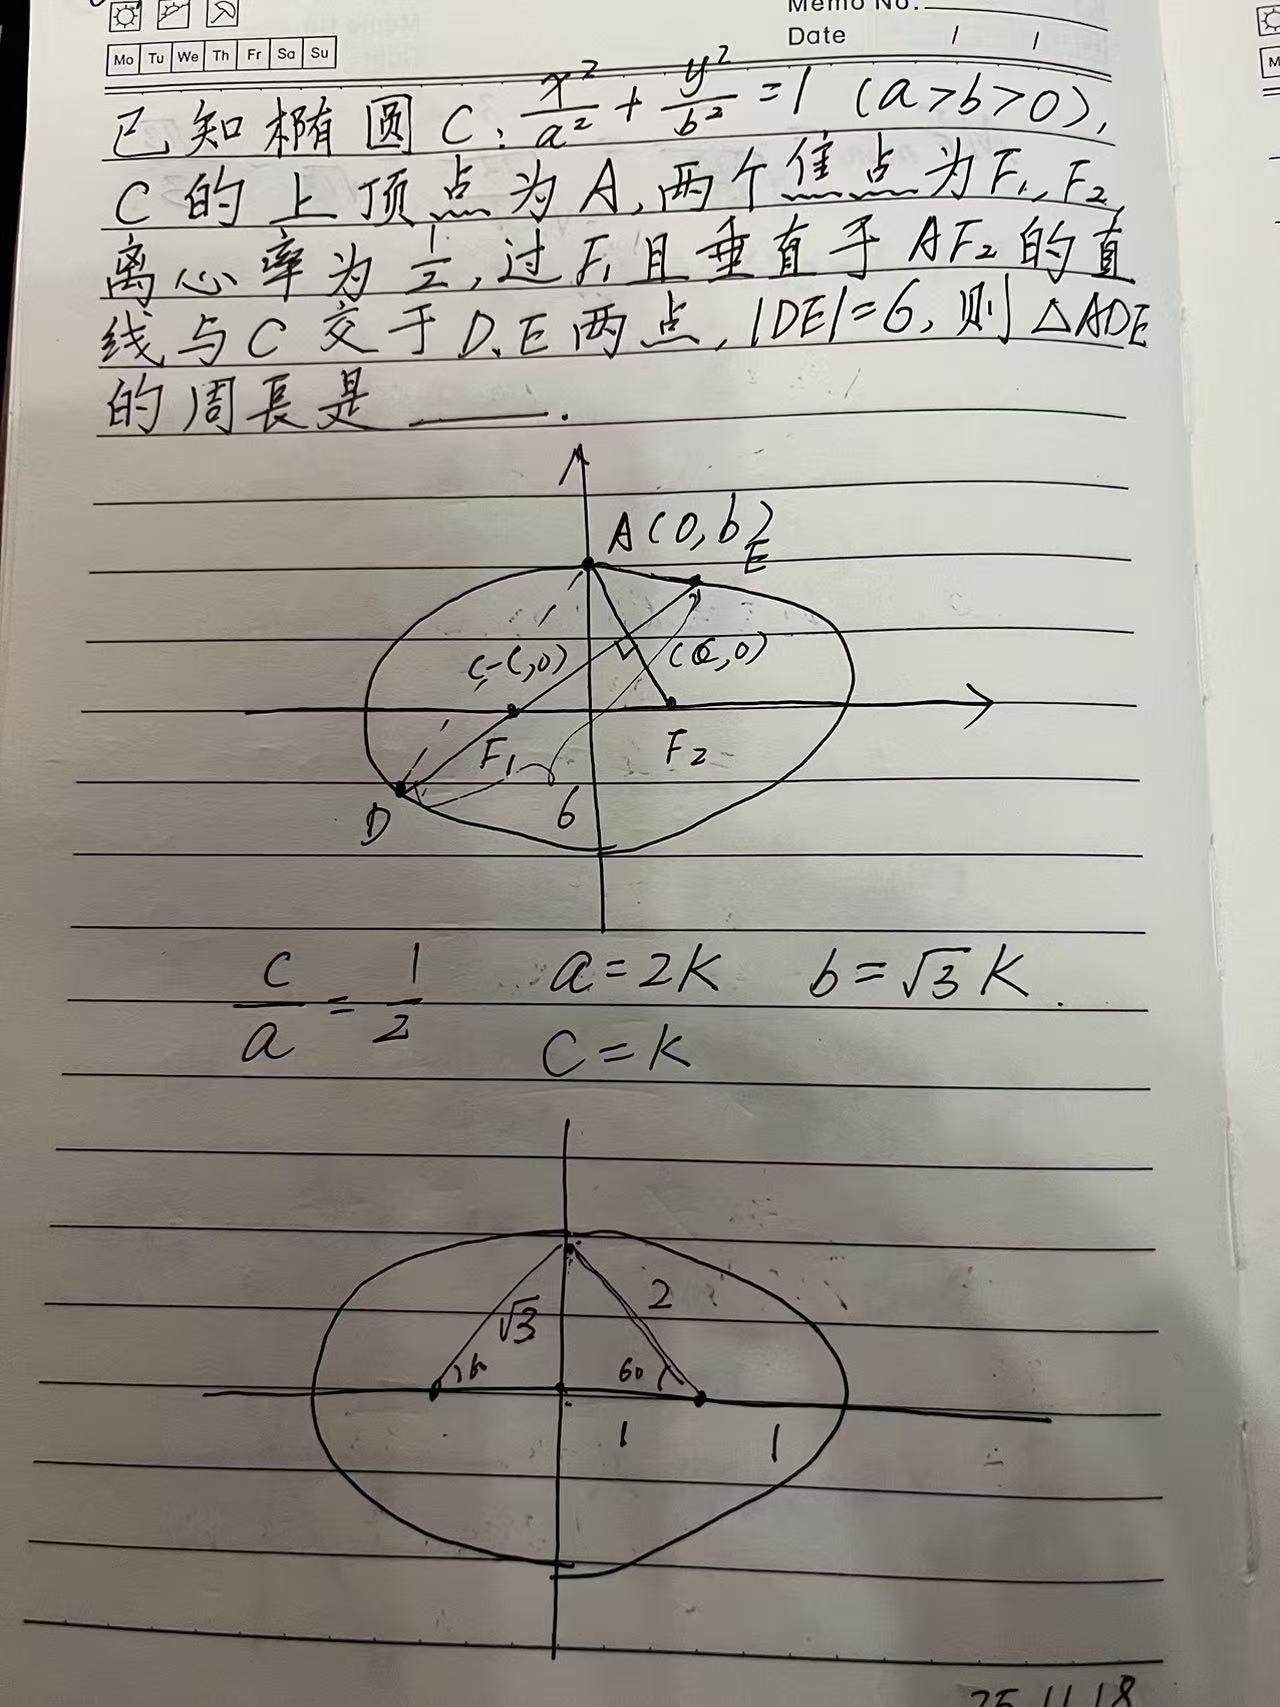 Memo No.
Mo Tu We Th Fr Sa Su
Date / /
已知椭圆C:x²/a²+y²/b²=1 (a>b>0),
C的上顶点为A,两个焦点为F₁,F₂,
离心率为1/2,过F₁且垂直于AF₂的直
线与C交于D、E两点,|DE|=6,则△ADE
的周長是____.
A(0,b)
E
(-c,0) (c,0)
F₁ F₂
D 6
c/a=1/2 a=2K b=√3K.
C=K
√3 2
60 60
1 1
25.11.18